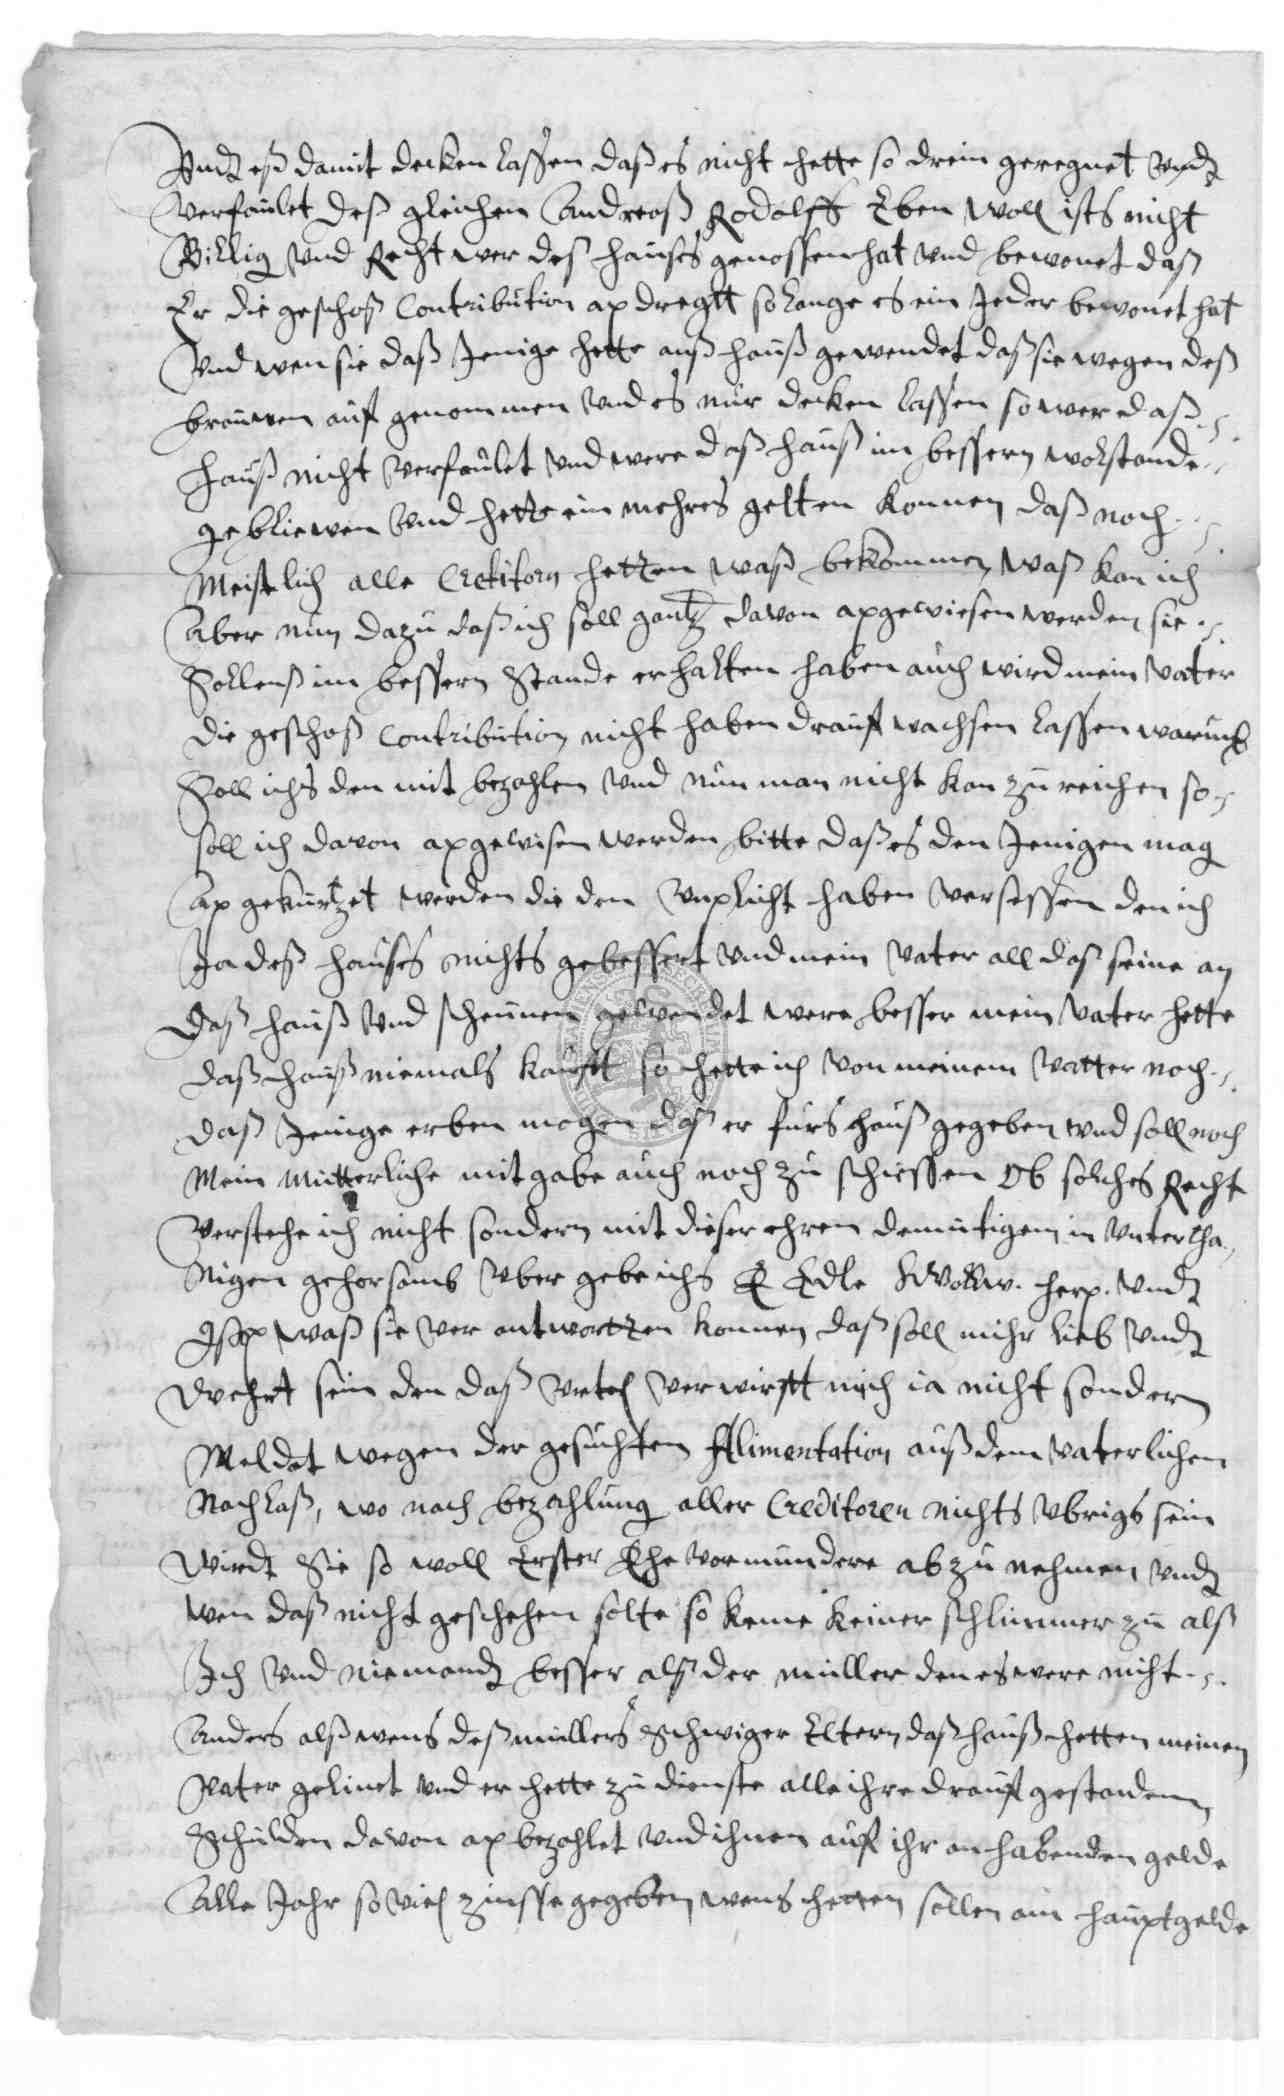 Vndt eß damit decken laßen daß es nicht hette so drein geregnet vndt
verfaulet deß gleichen Andreaß Rodolffs Eben woll ists nicht
Billig vnd Recht wer des hauses genossen hat vnd bewonet daß
Er die geschoß Contribution ap dregtt so lange es ein Jeder bewonet hat
Vnd wen sie daß Jenige hette anß hauß gewendet daß sie wegen deß
brauwen auf genommen vnd es nur decken laßen so wer daß
hauß nicht verfaulet vnd were daß hauß im bessern wolstande
gebliewen vnd hette ein mehres gelten konnen daß noch
Meistlich alle Creditorn hetten waß bekommen, waß kan ich
Aber nun dazu daß ich soll gantz davon apgewiesen werden, sie
Sollens im bessern Stande erhalten haben auch wird mein Vater
die geschoß Contribution nicht haben drauf wachsen laßen warumb
Soll ichs den mit bezahlen vnd nun man nicht kan zu reichen so
soll ich davon apgewisen werden, bitte daß es den Jenigen mag
Ap gekurtzet werden die den vnplicht haben versessen den ich
Ja deß hauses nichts gebessert vnd mein Vater all daß seine an
daß hauß vnd scheunen gewendet were besser mein Vater hette
daß hauß niemals kaufft so hette ich von meinem Vatter noch
daß Jenige erben mogen daß er furs hauß gegeben vnd soll noch
Mein Mutterliche mitgabe auch noch zu schiessen Ob solches Recht
verstehe ich nicht sondern mit dieser ehren demutigem in vntertha
nigen gehorsamb vber gebe ichs E Edle herr. vndt
waß sie ver antwortten konnen daß soll mihr lieb vndt
wehrt sein den daß vrtel verwirfft mich ia nicht sondern
Meldet wegen der gesuchten Alimentation auß dem vaterlichen
Nachlaß, wo nach bezahlung aller Creditoren nichts vbrigs sein
wirdt Sie so woll Erster Ehe vormundere abzunehmen, vndt
wen daß nicht geschehen solte so keme keiner schlimmer zu alß
Ich vnd niemandt besser alß der muller den es were nicht
Anders alß wens deß mullers Schwiger Eltern daß hauß hetten meinen
Vater gelient vnd er hette zu dienste alle ihre drauf gestandenen
Schulden davon ap bezahlet vnd ihnen auf ihr an habenden gelde
Alle Jahr so viel zinsse gegeben, wens hetten sollen am hauptgelde